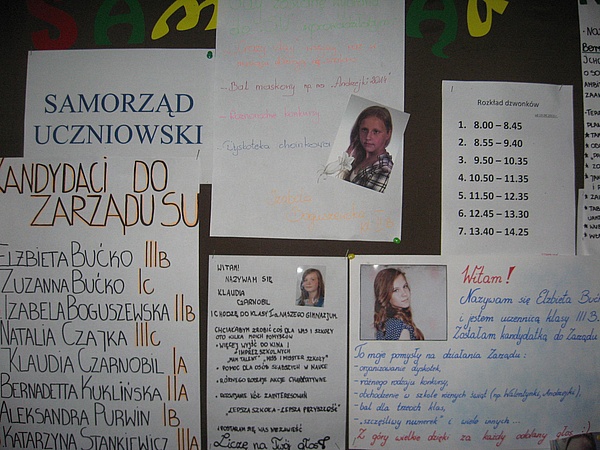 SAMORZĄD
UCZNIOWSKI
KANDYDACI DO
ZARZĄDU SU
ELŻBIETA BUĆKO IIIB
ZUZANNA BUĆKO IC
IZABELA BOGUSZEWSKA IIB
NATALIA CZAJKA IIIC
KLAUDIA CZARNOBIL IA
BERNADETTA KUKLIŃSKA IIA
ALEKSANDRA PURWIN IB
KATARZYNA STANKIEWICZ IIIA
- Bal maskowy np. na „Andrzejki-2014"
Dyskoteka choinkowa
Rozkład dzwonków
1. 8.00 – 8.45
2. 8.55 – 9.40
3. 9.50 – 10.35
4. 10.50 – 11.35
5. 11.50 – 12.35
6. 12.45 – 13.30
7. 13.40 – 14.25
WITAM!
NAZYWAM SIĘ
KLAUDIA
CZARNOBIL
I CHODZĘ DO KLASY Ia NASZEGO GIMNAZJUM.
CHCIAŁABYM ZROBIĆ COŚ DLA WAS I SZKOŁY
OTO KILKA MOICH POMYSŁÓW
• WIĘCEJ WYJŚĆ DO KINA I
• IMPREZ SZKOLNYCH
„MAM TALENT", „MISS I MISTER SZKOŁY"
• POMOC DLA OSÓB SŁABSZYCH W NAUCE
• RÓŻNEGO RODZAJU AKCJE CHARYTATYWNE
ZAINTERESOWAŃ
„LEPSZA SZKOŁA - LEPSZA PRZYSZŁOŚĆ"
Liczę na Twój głos!
Witam!
Nazywam się Elżbieta Buć
i jestem uczennicą klasy III B.
Zostałam kandydatką do Zarządu
To moje pomysły na działania Zarządu:
- organizowanie dyskotek,
- różnego rodzaju konkursy,
- obchodzenie w szkole różnych świąt (np. Walentynki, Andrzejki),
- bal dla trzecich klas,
- „szczęśliwy numerek" i wiele innych...
Z góry wielkie dzięki za każdy oddany głos :)